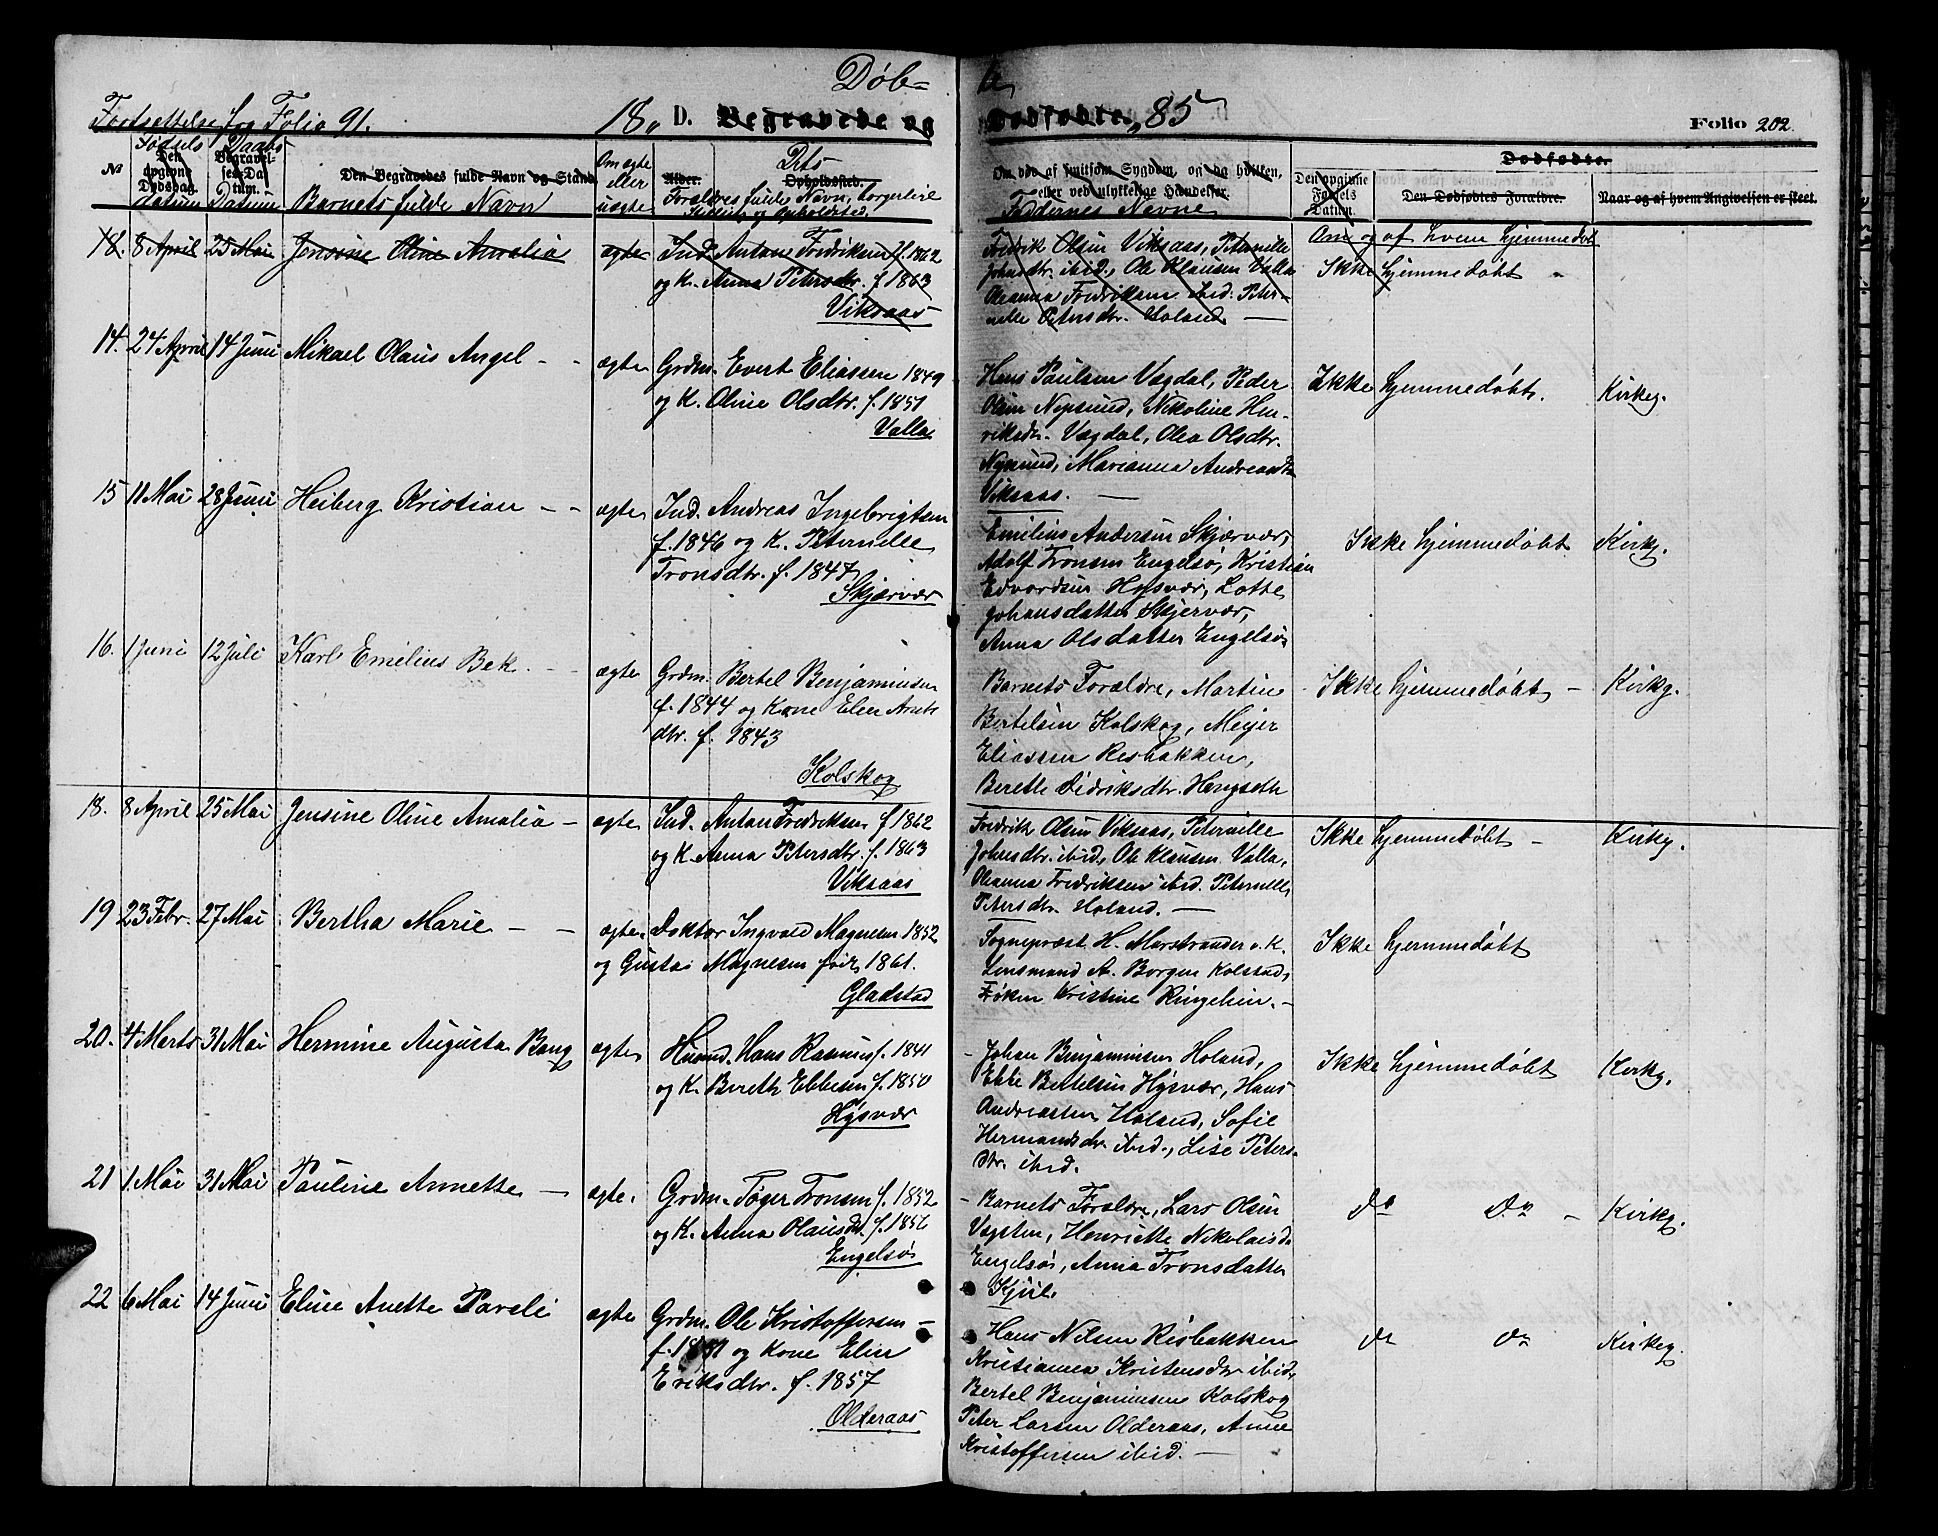 Døb-
te
Fortsettelse fra Folio 91.
18 D. Begravede og
Dødfødte. 85
Folio 202.
No
Fødsels
Den opgivne Dødsdag.
datum
Daabs
Begravelses-Datum.
Datum
Den Begravedes fulde Navn og Stand.
Barnets fulde Navn
Om ægte eller uægte
Alder.
Dets
Opholdssted.
Forældres fulde Navn, borgerlige
Stilling og Opholdssted
Om død af smitsom Sygdom, og da hvilken,
eller ved ulykkelige Hændelser.
Faddernes Navne
Den opgivne Fødsels Datum.
Dødfødte.
Den Dødfødtes Forældre.
Naar og af hvem Angivelsen er skeet.
Om og af hvem hjemmedøbt
18. 8 April 25 Mai Jensine Oline Amalia ægte Ind. Anton Fredriksen f. 1862
og K. Anna Petersdtr. f. 1863
Viksaas
Fredrik Olsen Viksaas, Peternille
Johnsdtr. ibid., Ole Klausen Valla
Oleanna Fredriksen ibid. Peter-
nelle Petersdtr. Holand —
Ikke hjemmedøbt
14. 24 April 14 Juni Mikael Olaus Angel - - ægte Grdm. Evert Eliassen 1849
og K. Oline Olsdtr. f. 1851
Valla
Hans Paulsen Vægdal, Peder
Olsen Nepsund, Nikoline Hen-
riksdtr. Vægdal, Olea Olsdtr.
Nepsund, Marianna Andreasdtr
Viksaas. —
Ikke hjemmedøbt. Kirkeg.
15 11 Mai 28 Juni Heiberg Kristian - - ægte Ind. Andreas Ingebrigtsen
f. 1846 og K. Peternelle
Tronsdtr. f. 1847
Skjærvær
Emilius Andersen Skjærvær,
Adolf Tronsen Engelsø, Kristian
Edvardsen Hysvær, Lotte
Johansdatter Skjervær,
Anna Olsdatter Engelsø
Ikke hjemmedøbt Kirkg.
16. 1 Juni 12 Juli Karl Emelius Bek. - - ægte Grdm. Bertel Benjaminsen
f. 1844 og Kone Elen Arnts
dtr. f. 1843
Kolskog
Barnets Forældre, Martin
Bertelsen Kolskog, Meyer
Eliassen Resbakken,
Berette Didriksdtr. Hengseth
Ikke hjemmedøbt - Kirkg.
18. 8 April 25 Mai Jensine Oline Amalia - ægte Ind. Anton Fredriksen f 1862
og K. Anna Petersdtr. f. 1863
Viksaas
Fredrik Olsen Viksaas, Peternille
Johnsdtr. ibid, Ole Klausen Valla,
Oleanna Fredriksen ibid. Peternelle
Petersdtr. Holand. —
Ikke hjemmedøbt - Kirkg.
19 23 Febr. 27 Mai Bertha Marie - - ægte. Doktor Ingvald Magnesen 1852
og Gustai Magnesen født 1861.
Gladstad
Sogneprest H. Marstrander o. K.
Lensmand A. Borgen Kolstad,
Frøken Kristine Ringheim. -
Ikke hjemmedøbt
20. 4 Marts 31 Mai Hermine Augusta Bang ægte Husmd. Hans Rasmus f. 1841
og K. Bereth Ebbesen f. 1850
Hysvær
Johan Benjaminsen Holand,
Ebbe Bertelsen Hysvær, Hans
Andreassen Holand, Sofie
Hermandsdtr. ibid., Lise Peters-
dtr. ibid.
Ikke hjemmedøbt Kirkg.
21 1. Mai 31 Mai Pauline Annette - ægte. Grdm. Tøger Tronsen f. 1852
og K. Anna Olausdtr. f. 1856
Engelsø
Barnets Forældre, Lars Olsen
Vegsten, Henriette Nikolaisd.
Engelsø, Anna Tronsdatter
Kjul.
do do - Kirkg.
22 6 Mai 14 Juni Eline Anette Pareli ægte Grdm. Ole Kristoffersen -
og Kone Elen
Eriksdtr. f. 1857
Olderaas
Hans Nilsen Resbakken
Kristianna Kristensdtr ibid,
Bertel Benjaminsen Kolskog
Peter Larsen Olderaas, Anne
Kristoffersen ibid. —
do do Kirkeg.